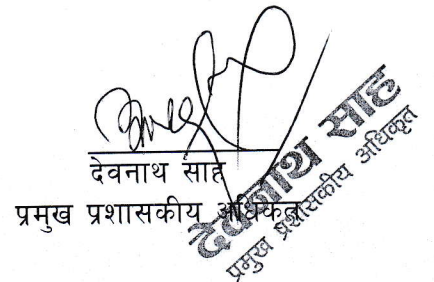 देवनाथ साह
प्रमुख प्रशासकीय अधिकृत
देवनाथ साह
प्रमुख प्रशासकीय अधिकृत